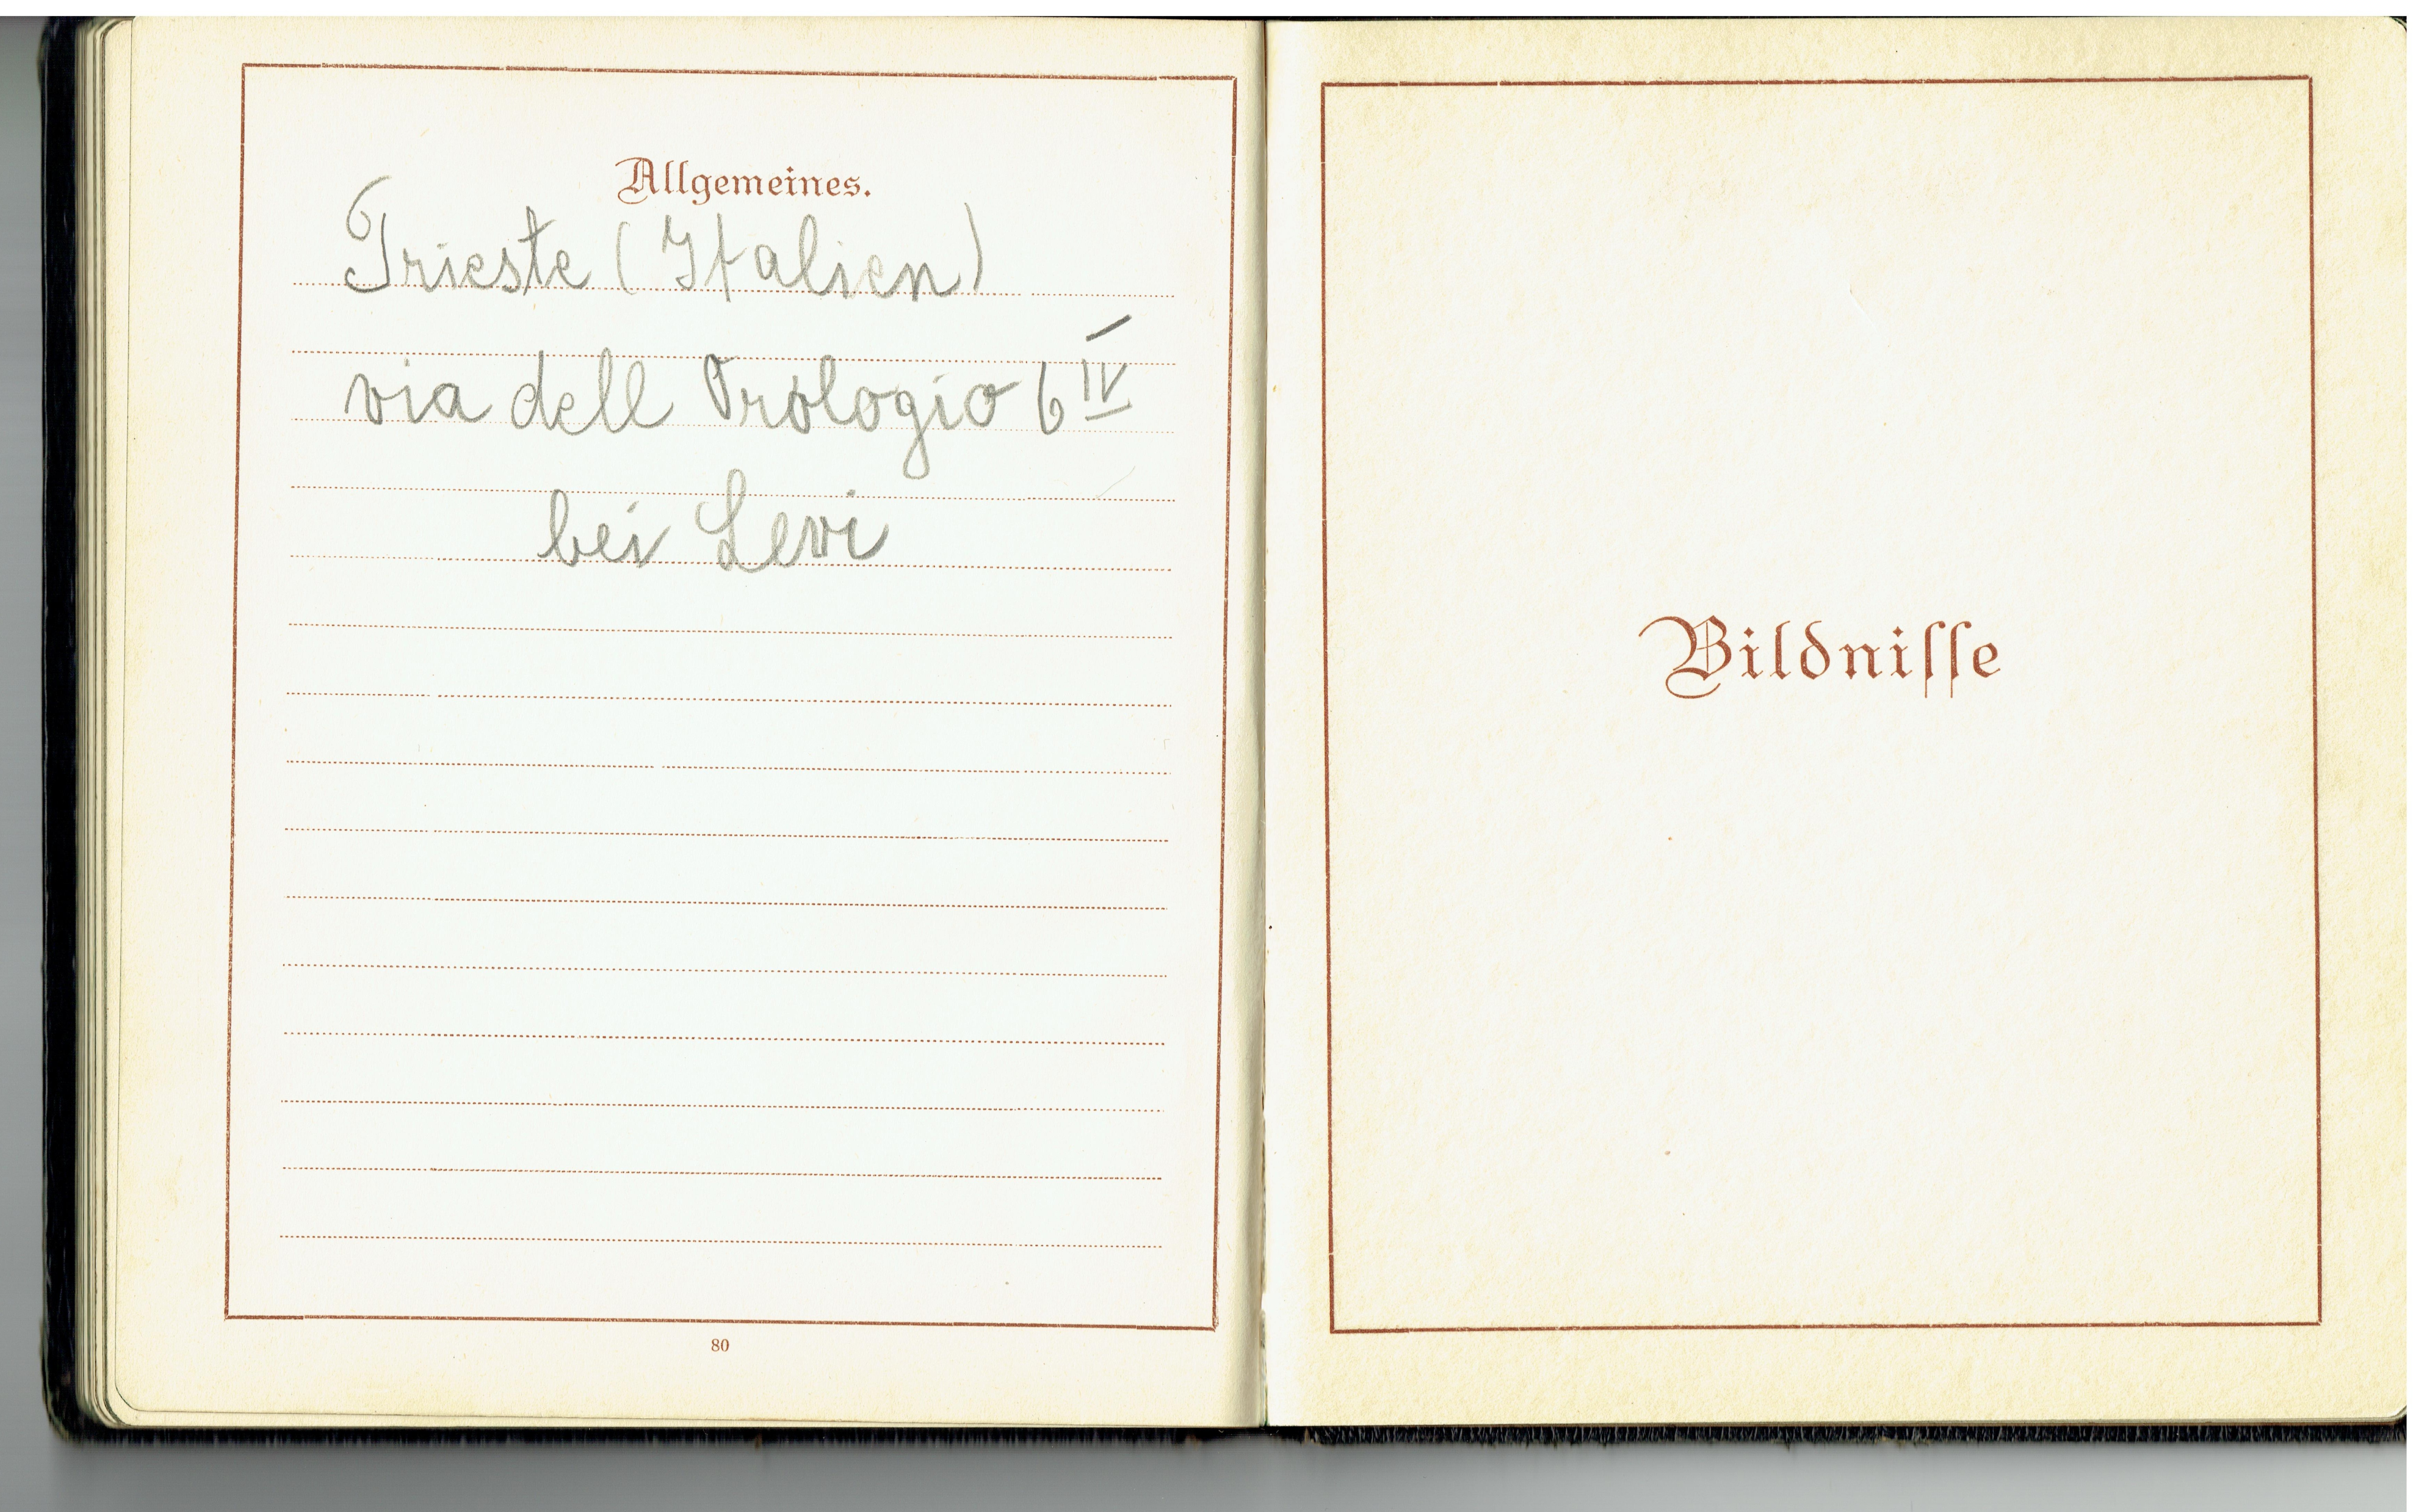 Allgemeines.
Trieste (Italien)
via dell Orologio 6 IV
bei Levi
80
Bildnisse